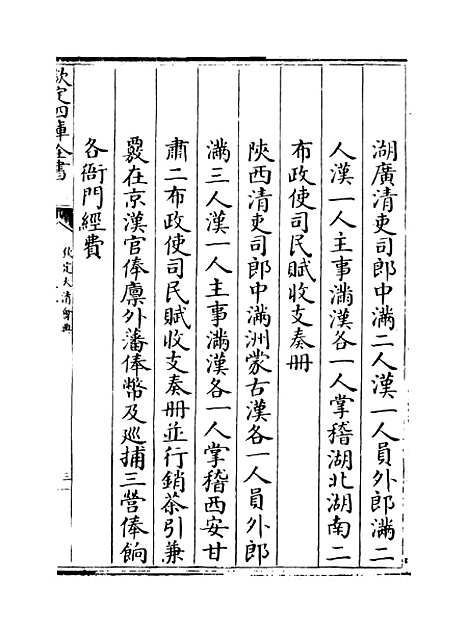 湖廣清吏司郎中滿二人漢一人員外郎滿二
人漢一人主事滿漢各一人掌稽湖北湖南二
布政使司民賦收支奏冊
陝西清吏司郎中滿洲蒙古漢各一人員外郎
滿三人漢一人主事滿漢各一人掌稽西安甘
肅二布政使司民賦收支奏冊並行銷茶引兼
覈在京漢官俸廪外藩俸幣及廵捕三營俸餉
各衙門經費
欽定四庫全書
欽定大清會典